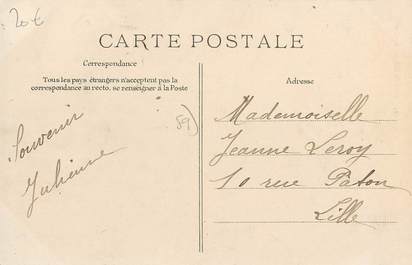 20€
CARTE POSTALE
Correspondance
Tous les pays étrangers n'acceptent pas la
correspondance au recto. se renseigner à la Poste
Souvenir
Julienne
59
Adresse
Mademoiselle
Jeanne Leroy
10 rue Paton
Lille